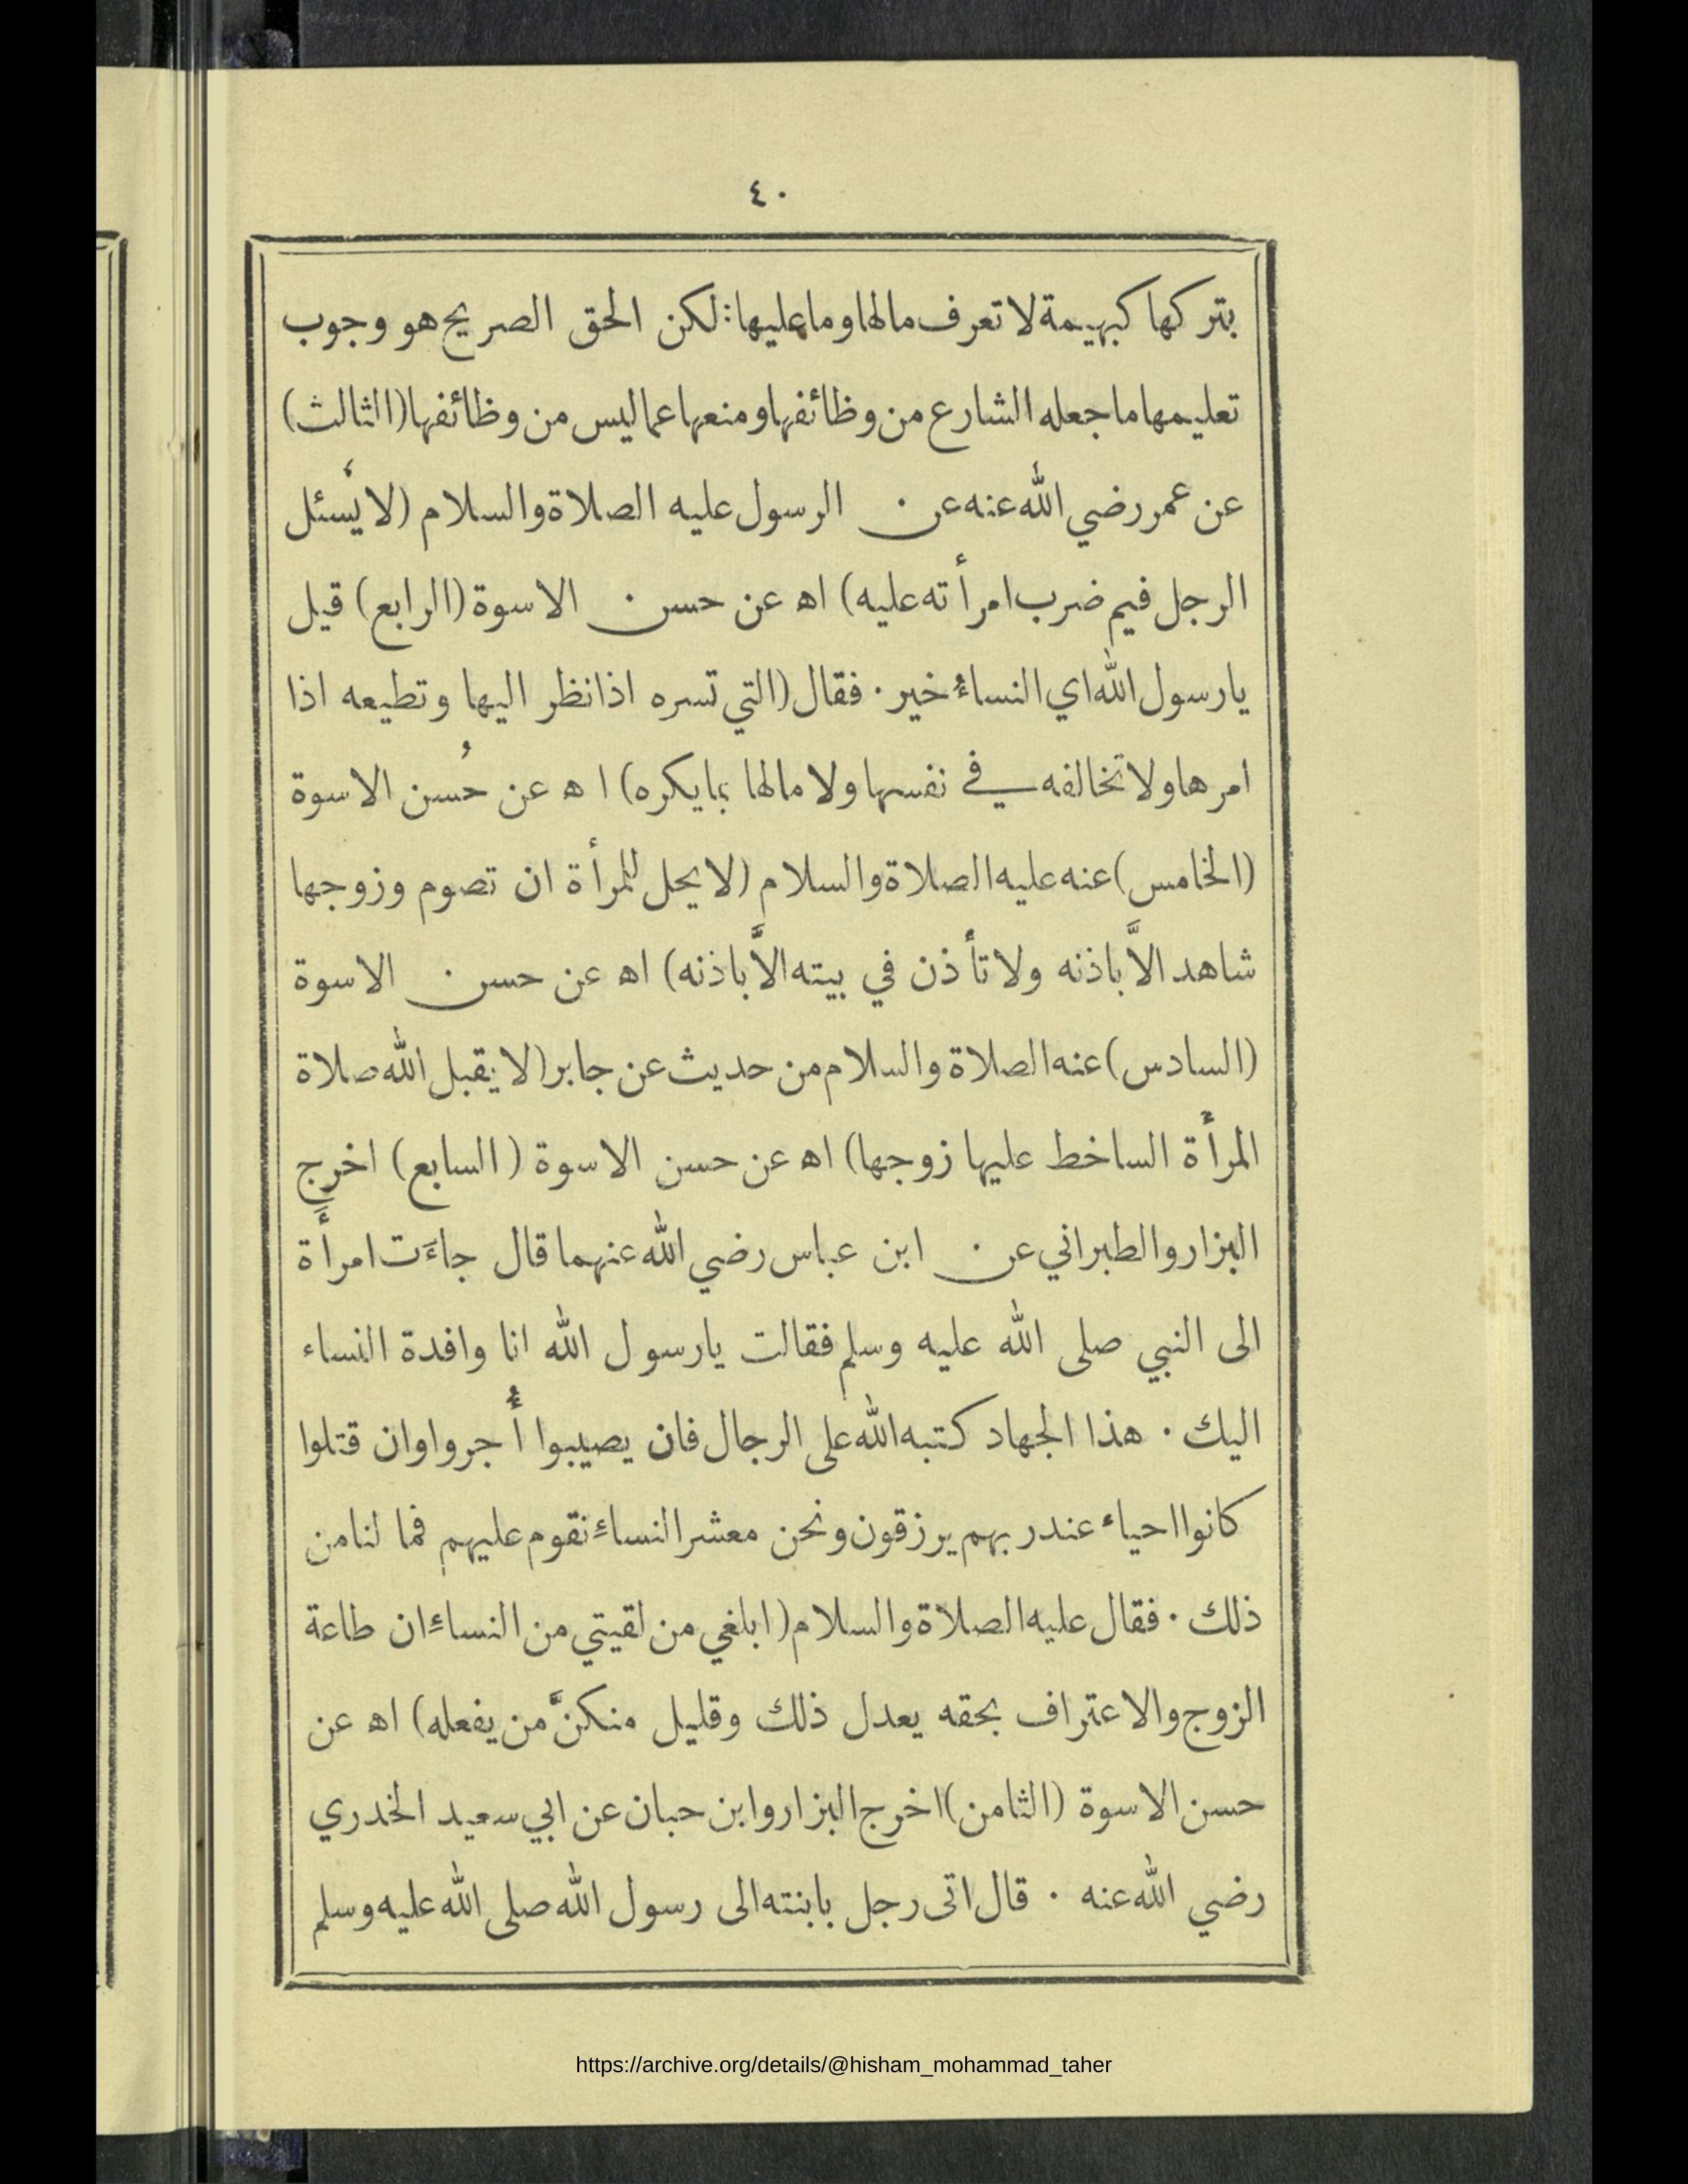 ٤٠
بتركها كبهيمة لا تعرف مالها وما عليها: لكن الحق الصريح هو وجوب
تعليمها ما جعله الشارع من وظائفها ومنعها عما ليس من وظائفها (الثالث)
عن عمر رضي الله عنه عن الرسول عليه الصلاة والسلام (لا يُسئل
الرجل فيم ضرب امرأته عليه) اه عن حسن الاسوة (الرابع) قيل
يارسول الله اي النساءُ خير · فقال (التي تسره اذا نظر اليها وتطيعه اذا
امرها ولا تخالفه في نفسها ولا مالها بما يكره) ا ه عن حُسن الاسوة
(الخامس) عنه عليه الصلاة والسلام (لا يحل للمرأة ان تصوم وزوجها
شاهد الاَّ باذنه ولا تأذن في بيته الاَّ باذنه) اه عن حسن الاسوة
(السادس) عنه الصلاة والسلام من حديث عن جابر (لا يقبل الله صلاة
المرأة الساخط عليها زوجها) اه عن حسن الاسوة (السابع) اخرج
البزار والطبراني عن ابن عباس رضي الله عنهما قال جاءَت امرأَة
الى النبي صلى الله عليه وسلم فقالت يارسول الله انا وافدة النساء
اليك · هذا الجهاد كتبه الله على الرجال فان يصيبوا أُجروا وان قتلوا
كانوا احياء عند ربهم يرزقون ونحن معشر النساءِ نقوم عليهم فما لنا من
ذلك · فقال عليه الصلاة والسلام (ابلغي من لقيتي من النساءِ ان طاعة
الزوج والاعتراف بحقه يعدل ذلك وقليل منكنَّ من يفعله) اه عن
حسن الاسوة (الثامن) اخرج البزار وابن حبان عن ابي سعيد الخدري
رضي الله عنه · قال اتى رجل بابنته الى رسول الله صلى الله عليه وسلم
https://archive.org/details/@hisham_mohammad_taher